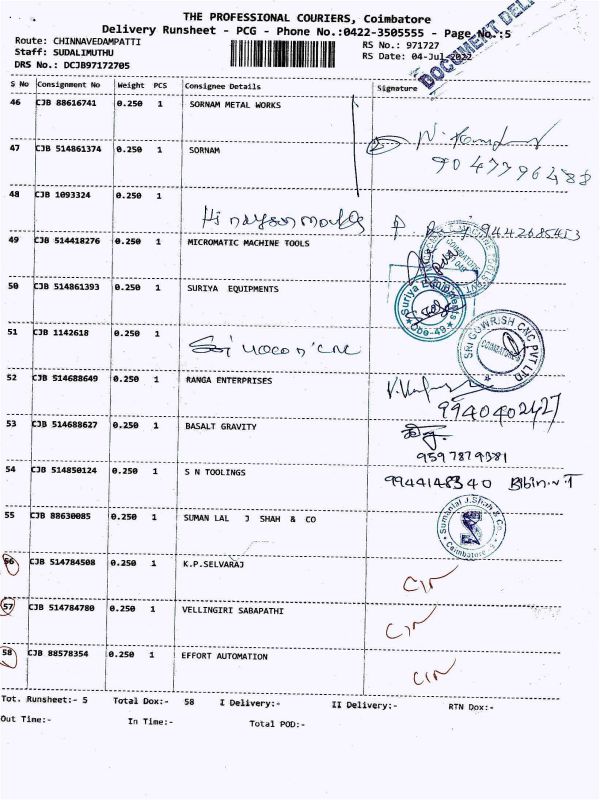 THE PROFESSIONAL COURIERS, Coimbatore
Delivery Runsheet - PCG - Phone No.:0422-3505555 - Page No.:5
Route: CHINNAVEDAMPATTI RS No.: 971727
Staff: SUDALIMUTHU RS Date: 04-Jul-2022
DRS No.: DCJB97172705
DOCUMENT DEL
S No Consignment No Weight PCS Consignee Details Signature
46 CJB 88616741 0.250 1 SORNAM METAL WORKS
47 CJB 514861374 0.250 1 SORNAM
9047796488
48 CJB 1093324 0.250 1
9442685453
49 CJB 514418276 0.250 1 MICROMATIC MACHINE TOOLS
50 CJB 514861393 0.250 1 SURIYA EQUIPMENTS
Suriya Equipments
51 CJB 1142618 0.250 1
SRI GOWRISH CNC PVT LTD
COIMBATORE
52 CJB 514688649 0.250 1 RANGA ENTERPRISES
9940402427
53 CJB 514688627 0.250 1 BASALT GRAVITY
9597879381
54 CJB 514850124 0.250 1 S N TOOLINGS
9944148340 Bibin.v.T
55 CJB 88630085 0.250 1 SUMAN LAL J SHAH & CO
Sumanlal J.Shah & Co.
Coimbatore
56 CJB 514784508 0.250 1 K.P.SELVARAJ
57 CJB 514784780 0.250 1 VELLINGIRI SABAPATHI
58 CJB 88578354 0.250 1 EFFORT AUTOMATION
Tot. Runsheet:- 5 Total Dox:- 58 I Delivery:- II Delivery:- RTN Dox:-
Out Time:- In Time:- Total POD:-